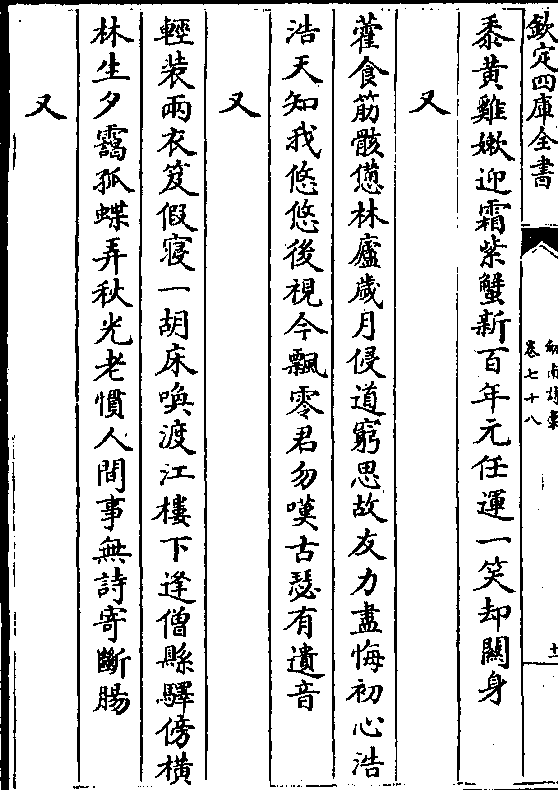 欽定四庫全書
劍南詩藁
卷七十八
十
黍黄雞嫰迎霜紫蟹新百年元任運一笑却關身
又
藿食筋骸憊林廬歲月侵道窮思故友力盡悔初心浩
浩天知我悠悠後視今飄零君勿嘆古瑟有遺音
又
輕装兩衣笈假寢一胡床喚渡江樓下逢僧縣驛傍橫
林生夕靄孤蝶弄秋光老慣人間事無詩寄斷腸
又